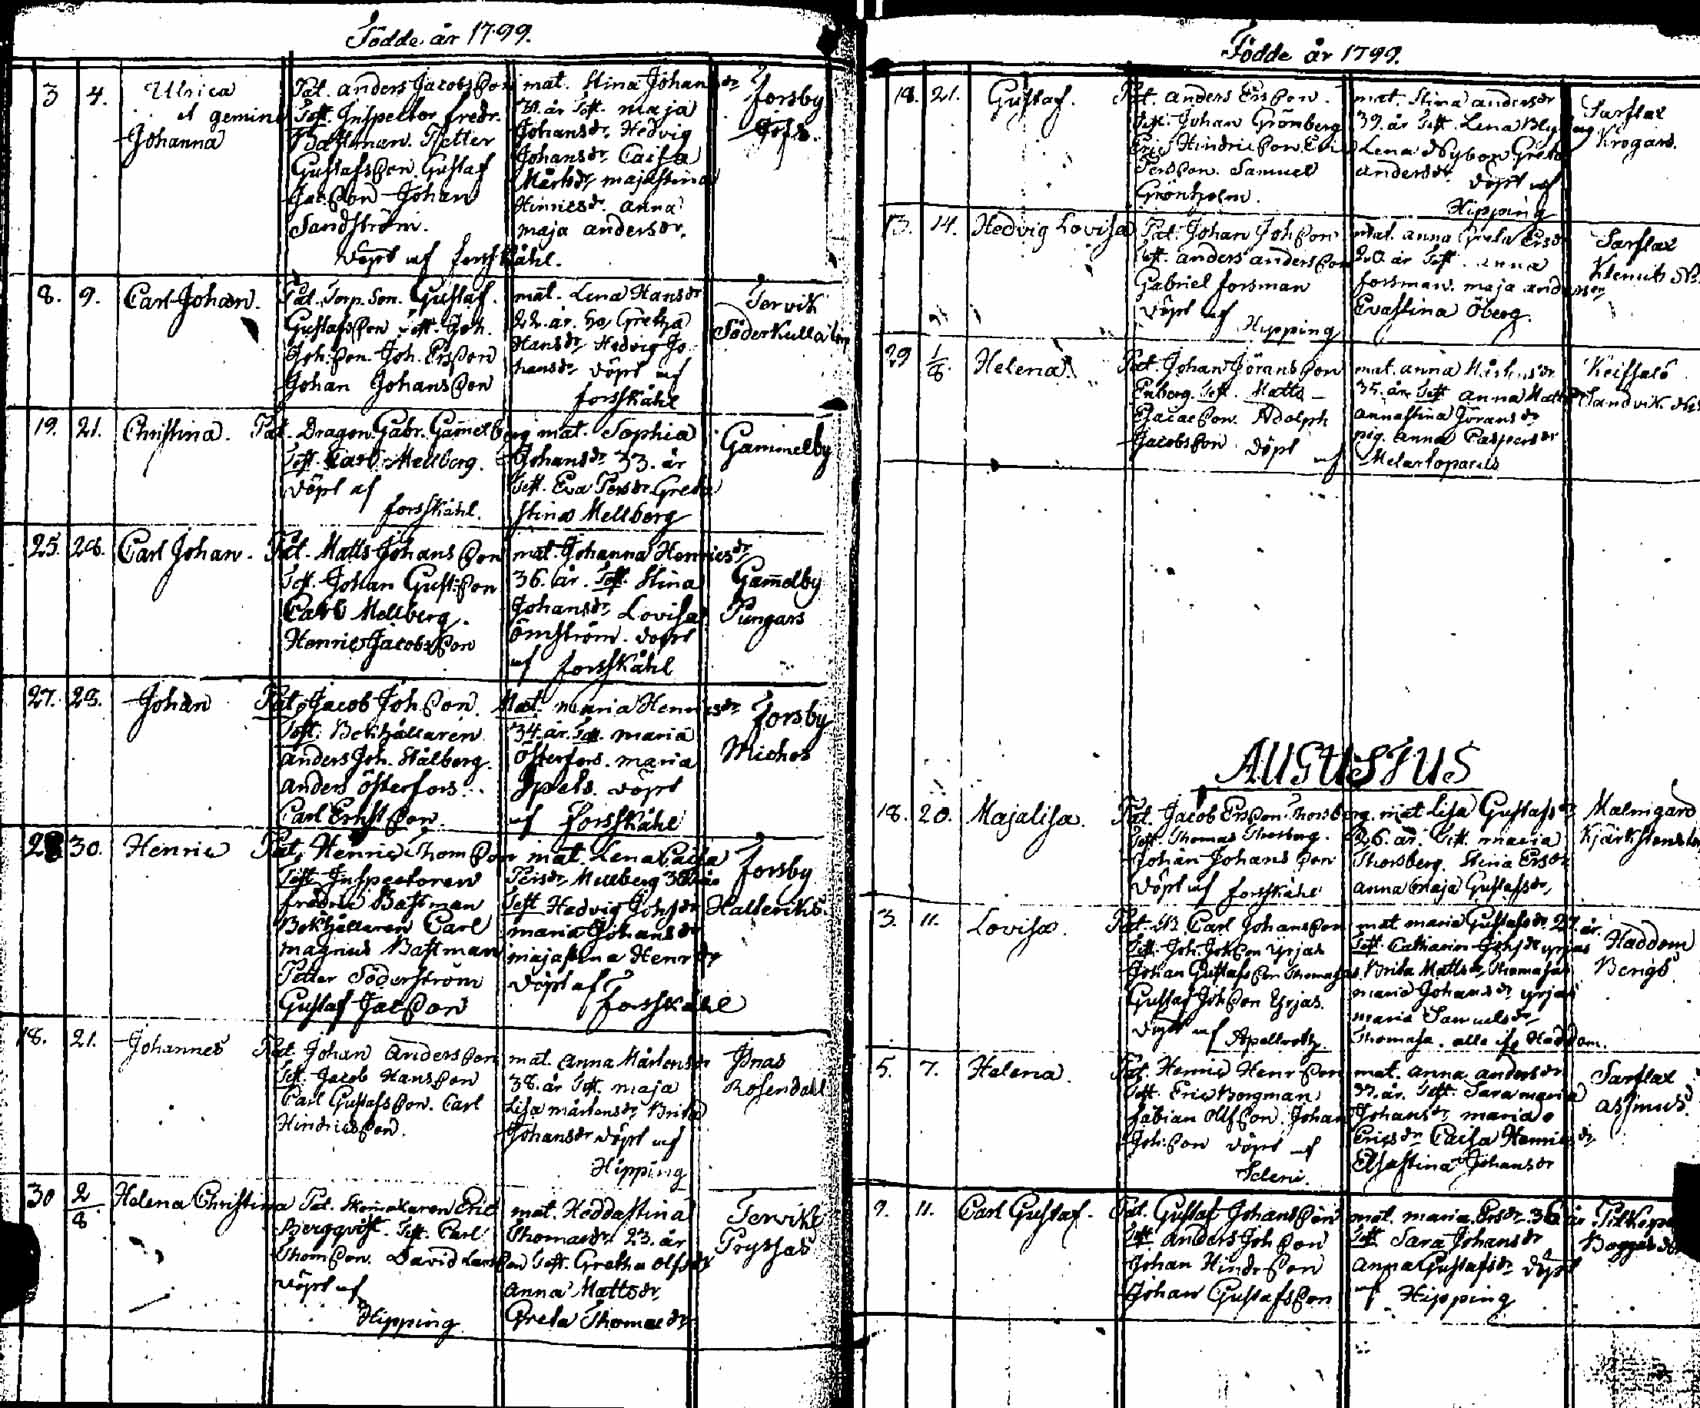 Födde år 1799.
3 4. Ulrica
et gemine
Johanna
Pat. Anders Jacobsson
Test. Inspector Fredr.
Bastman. Petter
Gustafsson. Gustaf
Jacsson Johan
Sandström.
mat. Stina Johansdr
31. år Test. Maja
Johansdr, Hedvig
Johansdr. Caisa
Mårtsdr. Majastina
Hinricsdr. Anna
Maja Andersdr.
döpt af Forsskåhl.
Forsby
8. 9. Carl Johan.
Pat. Torp. Son. Gustaf
Gustafsson Test. Joh.
Johsson. Joh. Ersson
Johan Johansson
mat. Lena Hansdr
22. år. Gretha
Hansdr Hedvig Jo-
hansdr döpt af
Forsskåhl
Tervik
Söderkulla
19. 21. Christina.
Pat. Dragon. Gabr. Gamelberg
Test. Carl Mellberg.
döpt af
Forsskåhl.
mat. Sophia
Johansdr 33. år
Test. Eva Persdr. Greta
Stina Mellberg
Gammelby
25. 28. Carl Johan.
Pat. Matts Johansson
Test. Johan Gustsson
Carl Mellberg.
Henric Jacobsson
mat. Johanna Henricsdr
36. år. Test. Stina
Johansdr. Lovisa
Ömström. döpt
af Forsskåhl
Gamelby
Pungars
27. 28. Johan
Pat. Jacob Johsson.
Test. Bokhållaren
Anders Joh. Stålberg.
Anders Österfors.
Carl Ernstsson.
Mat. Maria Henricsdr
34. år. Test. Maria
Österfors. Maria
döpt
af Forsskåhl
Forsby
Michos
30. Henric
Pat. Henric Thomsson
Test. Inspectoren
Fredric Bastman
Bokhållaren Carl
Magnus Bastman
Petter Söderström
Gustaf Jacsson
mat. Lena Caisa
Persdr. Mellberg
Test. Hedvig Johsdr
Maria Johansdr
Majastina Henrsdr
döpt af
Forsskåhl
Forsby
18. 21. Johannes
Pat. Johan Andersson
Test. Jacob Hansson
Carl Gustafsson. Carl
Hindricsson.
mat. Anna Mårtensdr
38. år Test. Maja
Lisa Mårtensdr. Brita
Johansdr döpt af
Hipping
Jonas
Rosendahl
30 2/8 Helena Christina
Pat. Skomakaren Eric
Bergqvist. Test. Carl
Thomsson. David Larsson
döpt af
Hipping
mat. Heddastina
Thomasdr. 23. år
Test. Gretha Olfsdr
Anna Mattsdr.
Greta Thomasdr.
Tervik
Pryssas
Födde år 1799.
18. 21. Gustaf.
Pat. Anders Ersson.
Test. Johan Grönberg
Eric Hindricsson. Eric
Persson. Samuel
Grönholm.
mat. Stina Andersdr
39. år Test. Lena
Lena Nybom Greta
Andersdr.
döpt af
Hipping
Sarflax
Krogars.
13. 14. Hedvig Lovisa
Pat. Johan Johsson
Test. Anders Andersson
Gabriel Forsman
döpt af Hipping
mat. Anna Greta Ersdr
20. år Test. Anna
Forsman. Maja Andersdr
Evastina Öberg.
Sarflax
29 1/8. Helena.
Pat. Johan Göransson
Enberg. Test. Matts
Isacsson. Adolph
Jacobsson döpt af
mat. Anna
35. år. Test. Anna
Annastina Göransdr
pig. Anna Caspersdr
Melartopaeus
Keissalö
Sandvik
AUGUSTUS
18. 20. Majalisa.
Pat. Jacob Ersson Thorsberg.
Test. Thomas Thorsberg.
Johan Johansson
döpt af Forsskåhl
mat. Lisa Gustafsdr
26. år. Test. Maria
Thorsberg. Stina Ersdr
Anna Maja Gustafsdr.
Malmgård
3. 11. Lovisa.
Pat. B. Carl Johansson
Test. Joh. Johsson Yrjas
Johan Gustafsson Thomasas
Gustaf Johsson Yrjas.
döpt af Apellroth.
mat. Maria Gustafsdr. 27. år.
Test. Catharina Johsdr Yrjas
Brita Mattsdr. Thomasas
Maria Johansdr Yrjas
Maria Samuelsdr.
Thomasa. alla ifr. Haddom.
Haddom
Bengs
5. 7. Helena.
Pat. Henric Henrsson
Test. Eric Borgman
Fabian Olfsson. Johan
Johsson döpt af
Seleni.
mat. Anna Andersdr
år. Test. Sara Maria
Johansdr. Maria
Ericsdr Caisa Henricsdr
Elsastina Johansdr
Sarflax
Assmus.
9. 11. Carl Gustaf.
Pat. Gustaf Johansson
Test. Anders Johsson
Johan Hindrsson
Johan Gustafsson
mat. Maria Ersdr. 36 år
Test. Sara Johansdr
Anna Gustafsdr. döpt
af Hipping